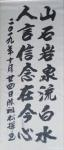 山石岩泉流白水
人言信念在今心
二〇一九年十月廿四日陈